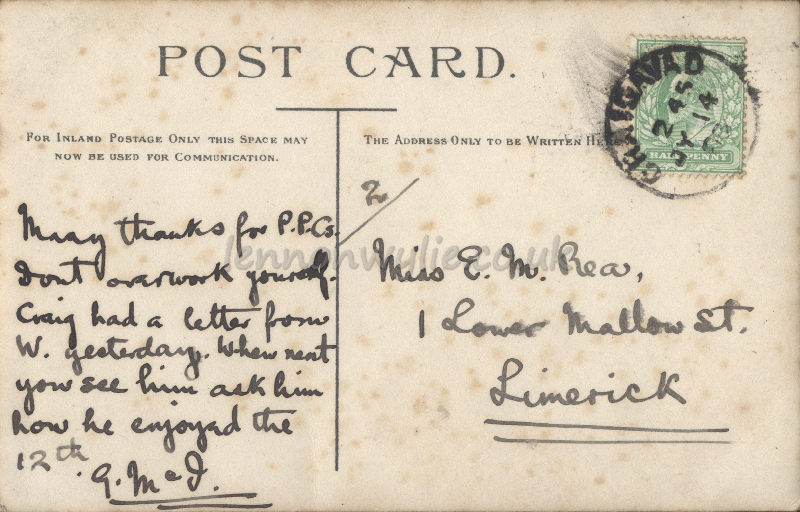 POST CARD.
FOR INLAND POSTAGE ONLY THIS SPACE MAY
NOW BE USED FOR COMMUNICATION.
THE ADDRESS ONLY TO BE WRITTEN HERE
CRAIGAVAD
2 45
JY 14
HALFPENNY
Many thanks for P.P.Cs.
Dont overwork yourself.
Craig had a letter from
W. yesterday. When next
you see him ask him
how he enjoyed the
12th
G. McI.
Miss E. M. Rea,
1 Lower Mallow St.
Limerick
lennonwylie.co.uk